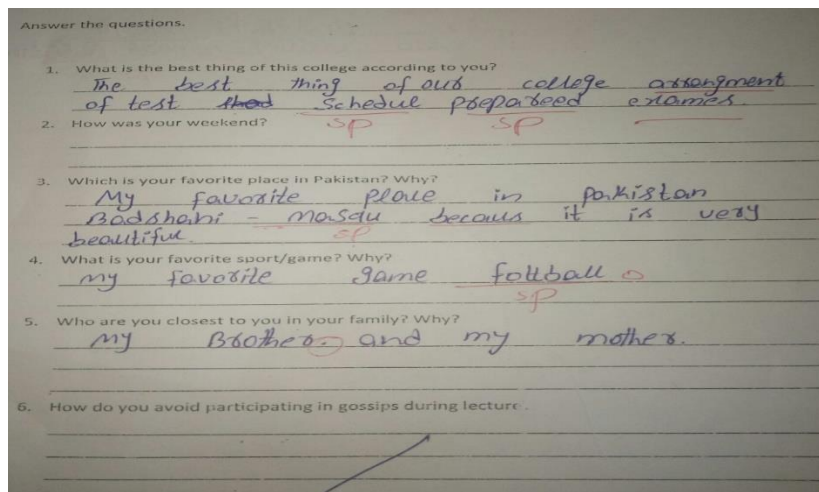 Answer the questions.
1. What is the best thing of this college according to you?
The best thing of our college arrangment
of test Schedul prepareed exames.
sp sp
2. How was your weekend?
3. Which is your favorite place in Pakistan? Why?
My favorite place in Pakistan
Badshahi - masqu becaus it is very
beautiful. sp
4. What is your favorite sport/game? Why?
my favorite game fottball
sp
5. Who are you closest to you in your family? Why?
My Brother. and my mother.
6. How do you avoid participating in gossips during lecture.